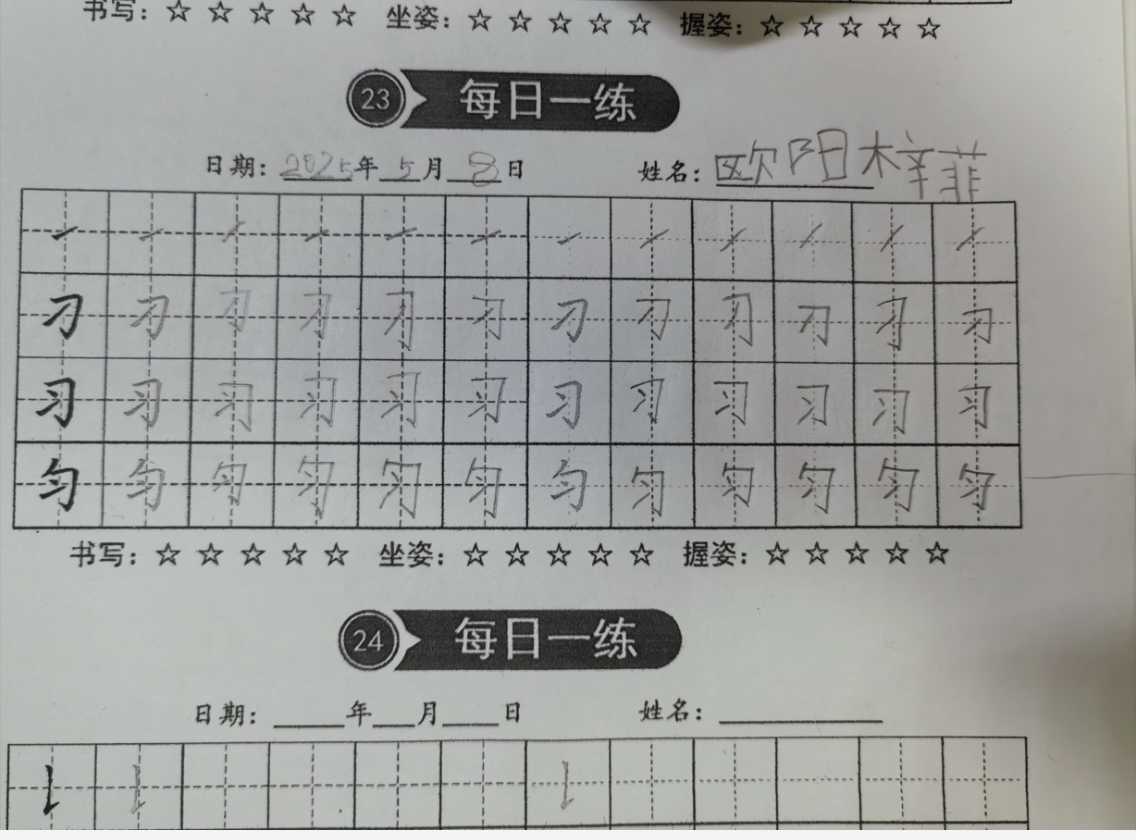 书写：☆ ☆ ☆ ☆ ☆ 坐姿：☆ ☆ ☆ ☆ ☆ 握姿：☆ ☆ ☆ ☆ ☆
23 每日一练
日期：2025年5月8日 姓名：欧阳梓菲
㇀ ㇀ ㇀ ㇀ ㇀ ㇀ ㇀ ㇀ ㇀ ㇀ ㇀ ㇀
刁 刁 刁 刁 刁 刁 刁 刁 刁 刁 刁 刁
习 习 习 习 习 习 习 习 习 习 习 习
匀 匀 匀 匀 匀 匀 匀 匀 匀 匀 匀 匀
书写：☆ ☆ ☆ ☆ ☆ 坐姿：☆ ☆ ☆ ☆ ☆ 握姿：☆ ☆ ☆ ☆ ☆
24 每日一练
日期：____年___月____日 姓名：________
𠄌 𠄌 𠄌